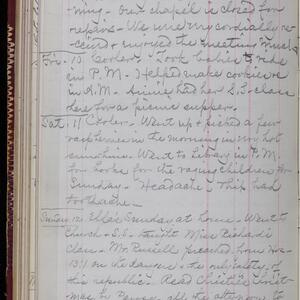 ning. Our chapel is closed for
repairs - We were very cordially re-
ceived & enjoyed the meeting much
Fri. 10 Cooler. Took babies to ride
in P.M. Helped make cookies
in A.M. had her S.S. class
here for a picnic supper.
Sat. 11 Cooler. Went up & picked a few
raspberries in the morning in very hot
sunshine. Went to Library in P.M.
for books for the children for
Sunday - Headache. had
toothache.
Sunday 12 Sunday at home. Went to
Church - S.S. taught Miss
class - Mr. Russell preached from
13:11 on the danger & the of
this republic. Read Christie
by all the afternoon to